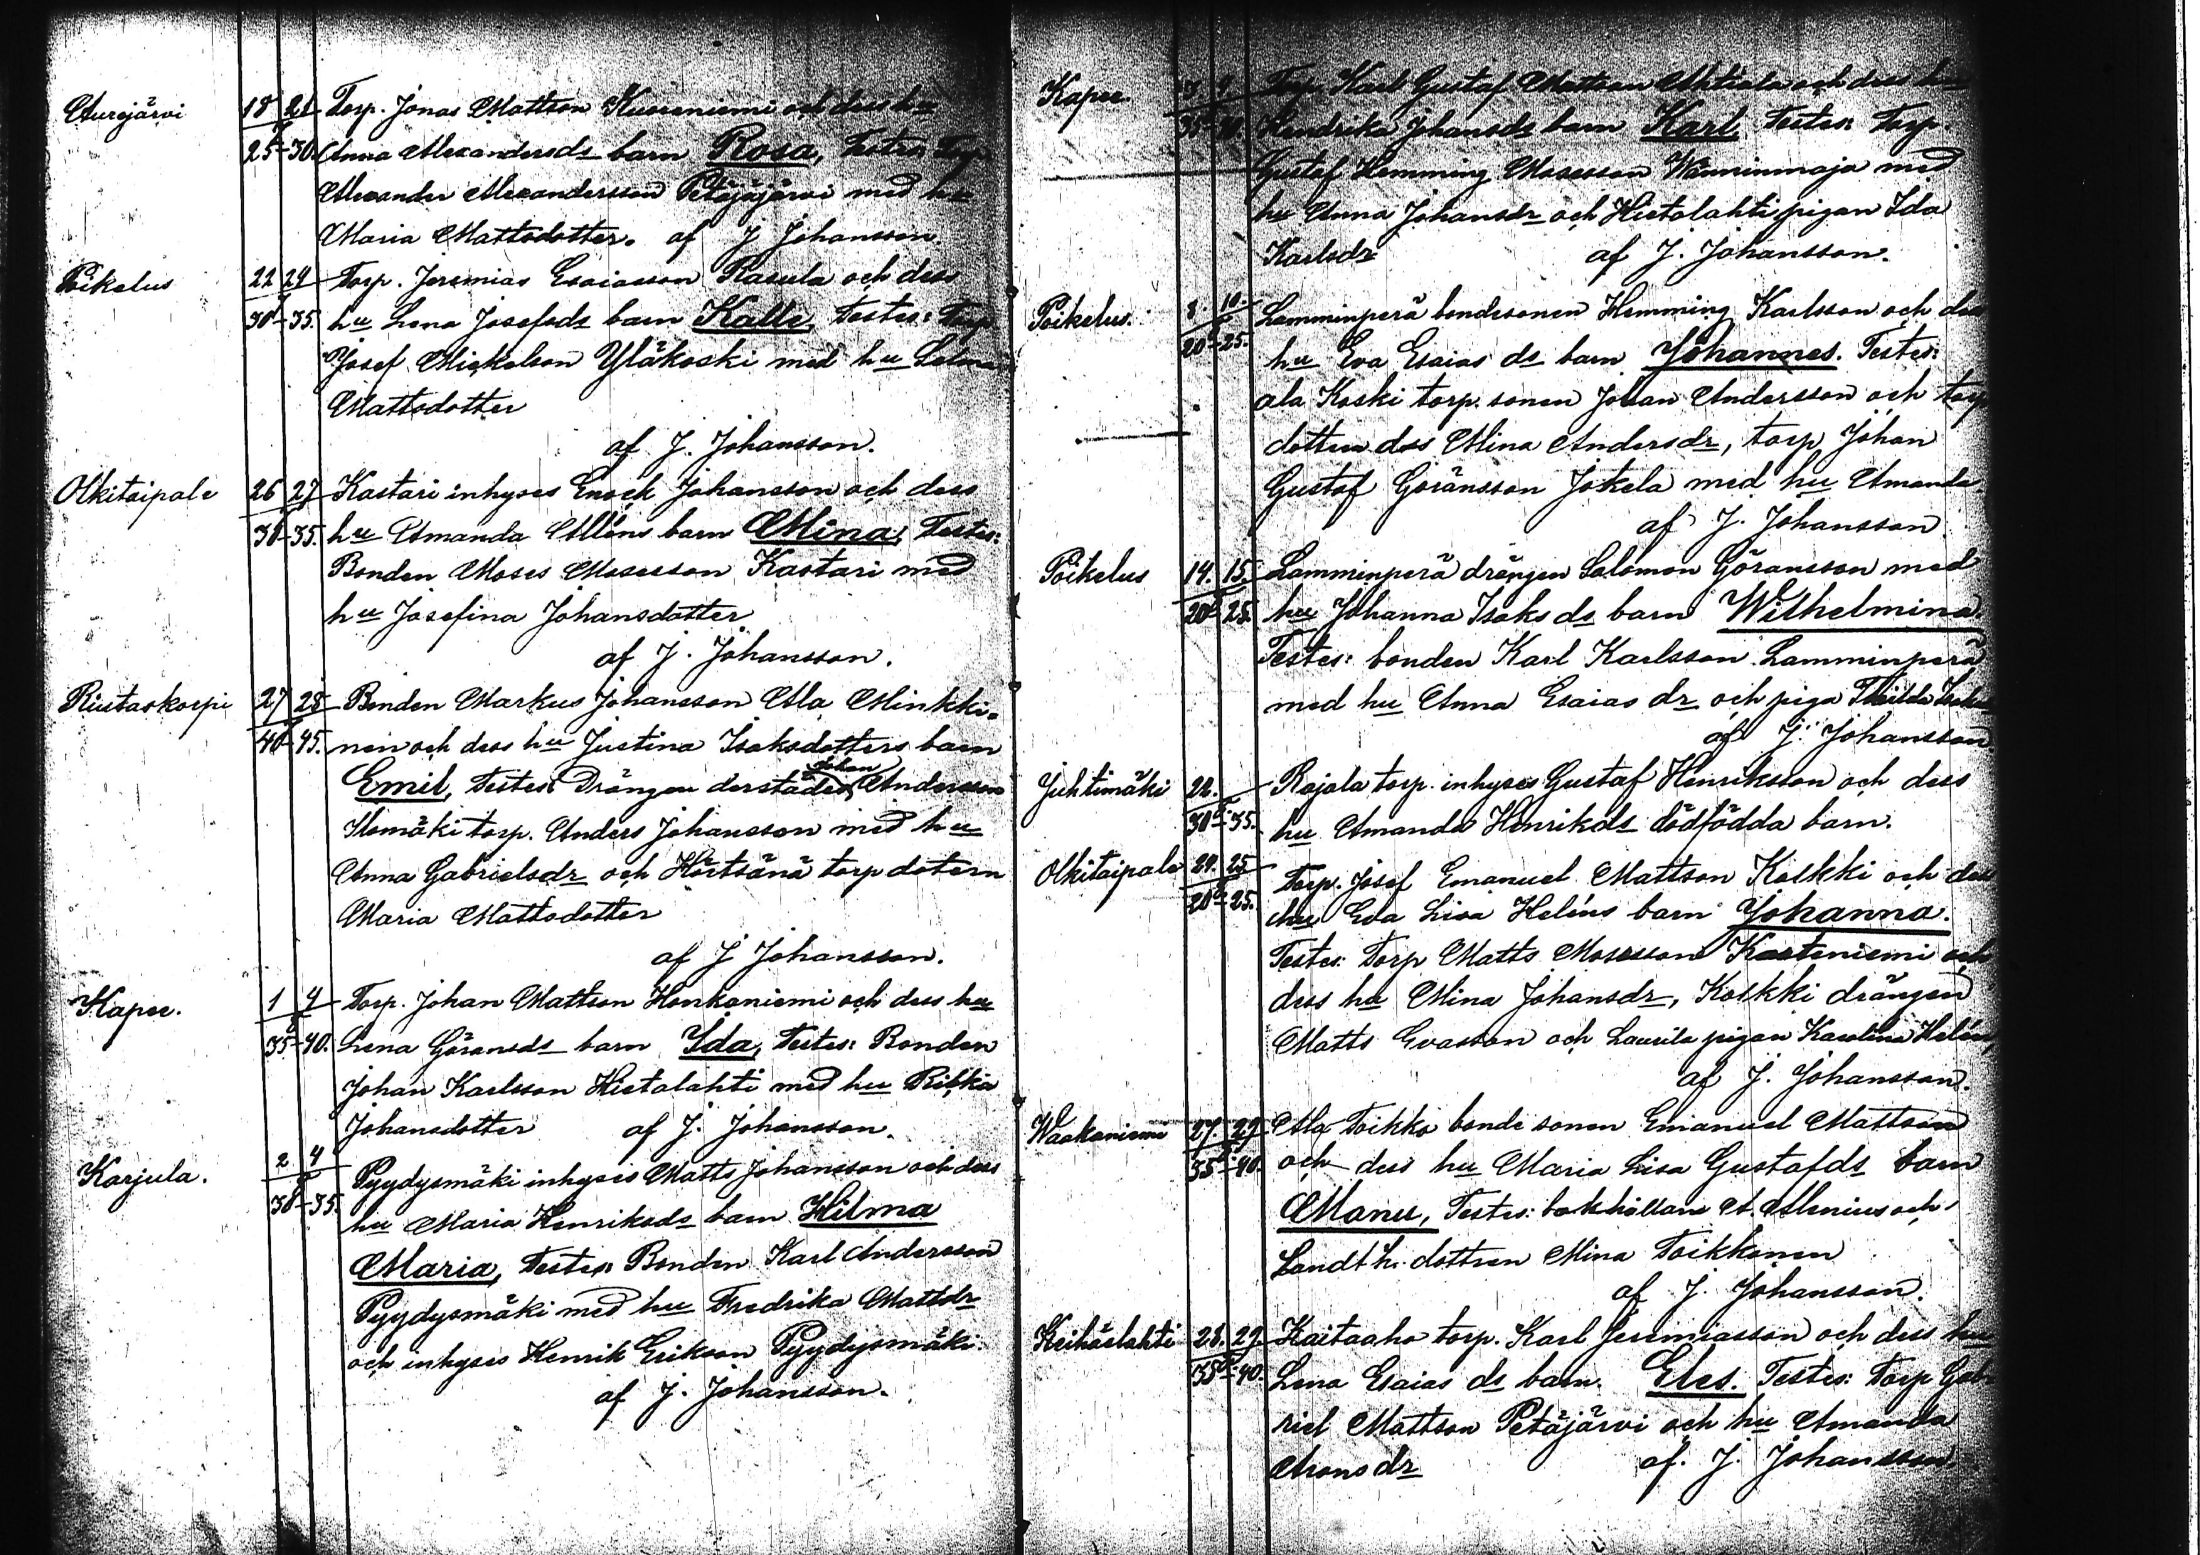 Aurejärvi 18 21 Torp. Jonas Mattson Kuoreniemi och dess hu
25-30 Anna Alexandersds barn Rosa, Testes: Torp
Alexander Alexandersson Petäjäjärvi med hu
Maria Mattsdotter. af J Johansson.
Poikelus 22 24 Torp. Jeremias Esaiasson Rasula och dess
30-35. hu Lena Josefsds barn Kalle, Testes: Torp
Josef Mickelson Yläkoski med hu Lena
Mattsdotter
af J. Johansson.
Olkitaipale 26 27 Kastari inhyses Enock Johansson och dess
30-35. hu Amanda Alléns barn Mina, Testes:
Bonden Moses Mosesson Kastari med
hu Josefina Johansdotter
af J. Johansson.
Riutaskorpi 27 28 Bonden Markus Johansson Ala Minkki-
40-45. nen och dess hu Justina Isaksdotters barn
Emil, Testes: Drängen derstädes Johan Andersson
Ilomäki torp. Anders Johansson med hu
Anna Gabrielsdr och Hörtsänä torp dotern
Maria Mattsdotter
af J Johansson.
Kapee. 1 4 Torp. Johan Mattson Honkaniemi och dess hu
35-40. Lena Göransds barn Ida, Testes: Bonden
Johan Karlsson Hietalahti med hu Ribka
Johansdotter af J. Johansson.
Karjula. 2 4 Pyydysmäki inhyses Matts Johansson och dess
30-35. hu Maria Henriksds barn Hilma
Maria, Testes: Bonden Karl Andersson
Pyydysmäki med hu Fredrika Mattsdr
och inhyses Henrik Erikson Pyydysmäki
af J. Johansson.
Kapee. 3. 4. Torp. Karl Gustaf Mattson Ahtiala och dess hu
35-40. Hendrika Johansds barn Karl Testes: Torp.
Gustaf Hemming Mosesson Wäärinmaja med
hu Anna Johansdr och Hietalahti pigan Ida
Karlsdr af J. Johansson.
Poikelus. 8. 10. Lamminperä bondesonen Hemming Karlsson och dess
20-25. hu Eva Esaias ds barn Johannes. Testes:
ala Koski torp. sonen Johan Andersson och torp
dottern dss Mina Andersdr, torp Johan
Gustaf Göransson Jokela med hu Amanda
af J. Johansson
Poikelus 14. 15. Lamminperä drängen Salomon Göransson med
20-25. hu Johanna Isaks ds barn Wilhelmina.
Testes: bonden Karl Karlsson Lamminperä
med hu Anna Esaias dr och piga
af J. Johansson.
Juhtimäki 22. Rajala torp. inhyses Gustaf Henriksson och dess
30-35. hu Amanda Henriksds dödfödda barn.
Olkitaipale 24. 25 Torp. Josef Emanuel Mattson Kolkki och dess
20-25. hu Eva Lisa Heléns barn Johanna.
Testes: Torp Matts Mosesson Kasteniemi och
dess hu Mina Johansdr, Kolkki drängen
Matts Evasson och Laurila pigan Karolina Helén,
af J. Johansson.
Waskaniemi 27. 29 Ala Toikko bonde sonen Emanuel Mattson
35-40. och dess hu Maria Lisa Gustafds barn
Manu, Testes: bokhållare A. Alenius och
Landth. dottren Mina Toikkonen
af J. Johansson.
Keihäslahti 28. 29 Kaitaaho torp. Karl Jeremiasson och dess hu
35-40. Lena Esaias ds barn. Eles. Testes: Torp Gab-
riel Mattson Petäjärvi och hu Amanda
Arons dr af. J. Johansson